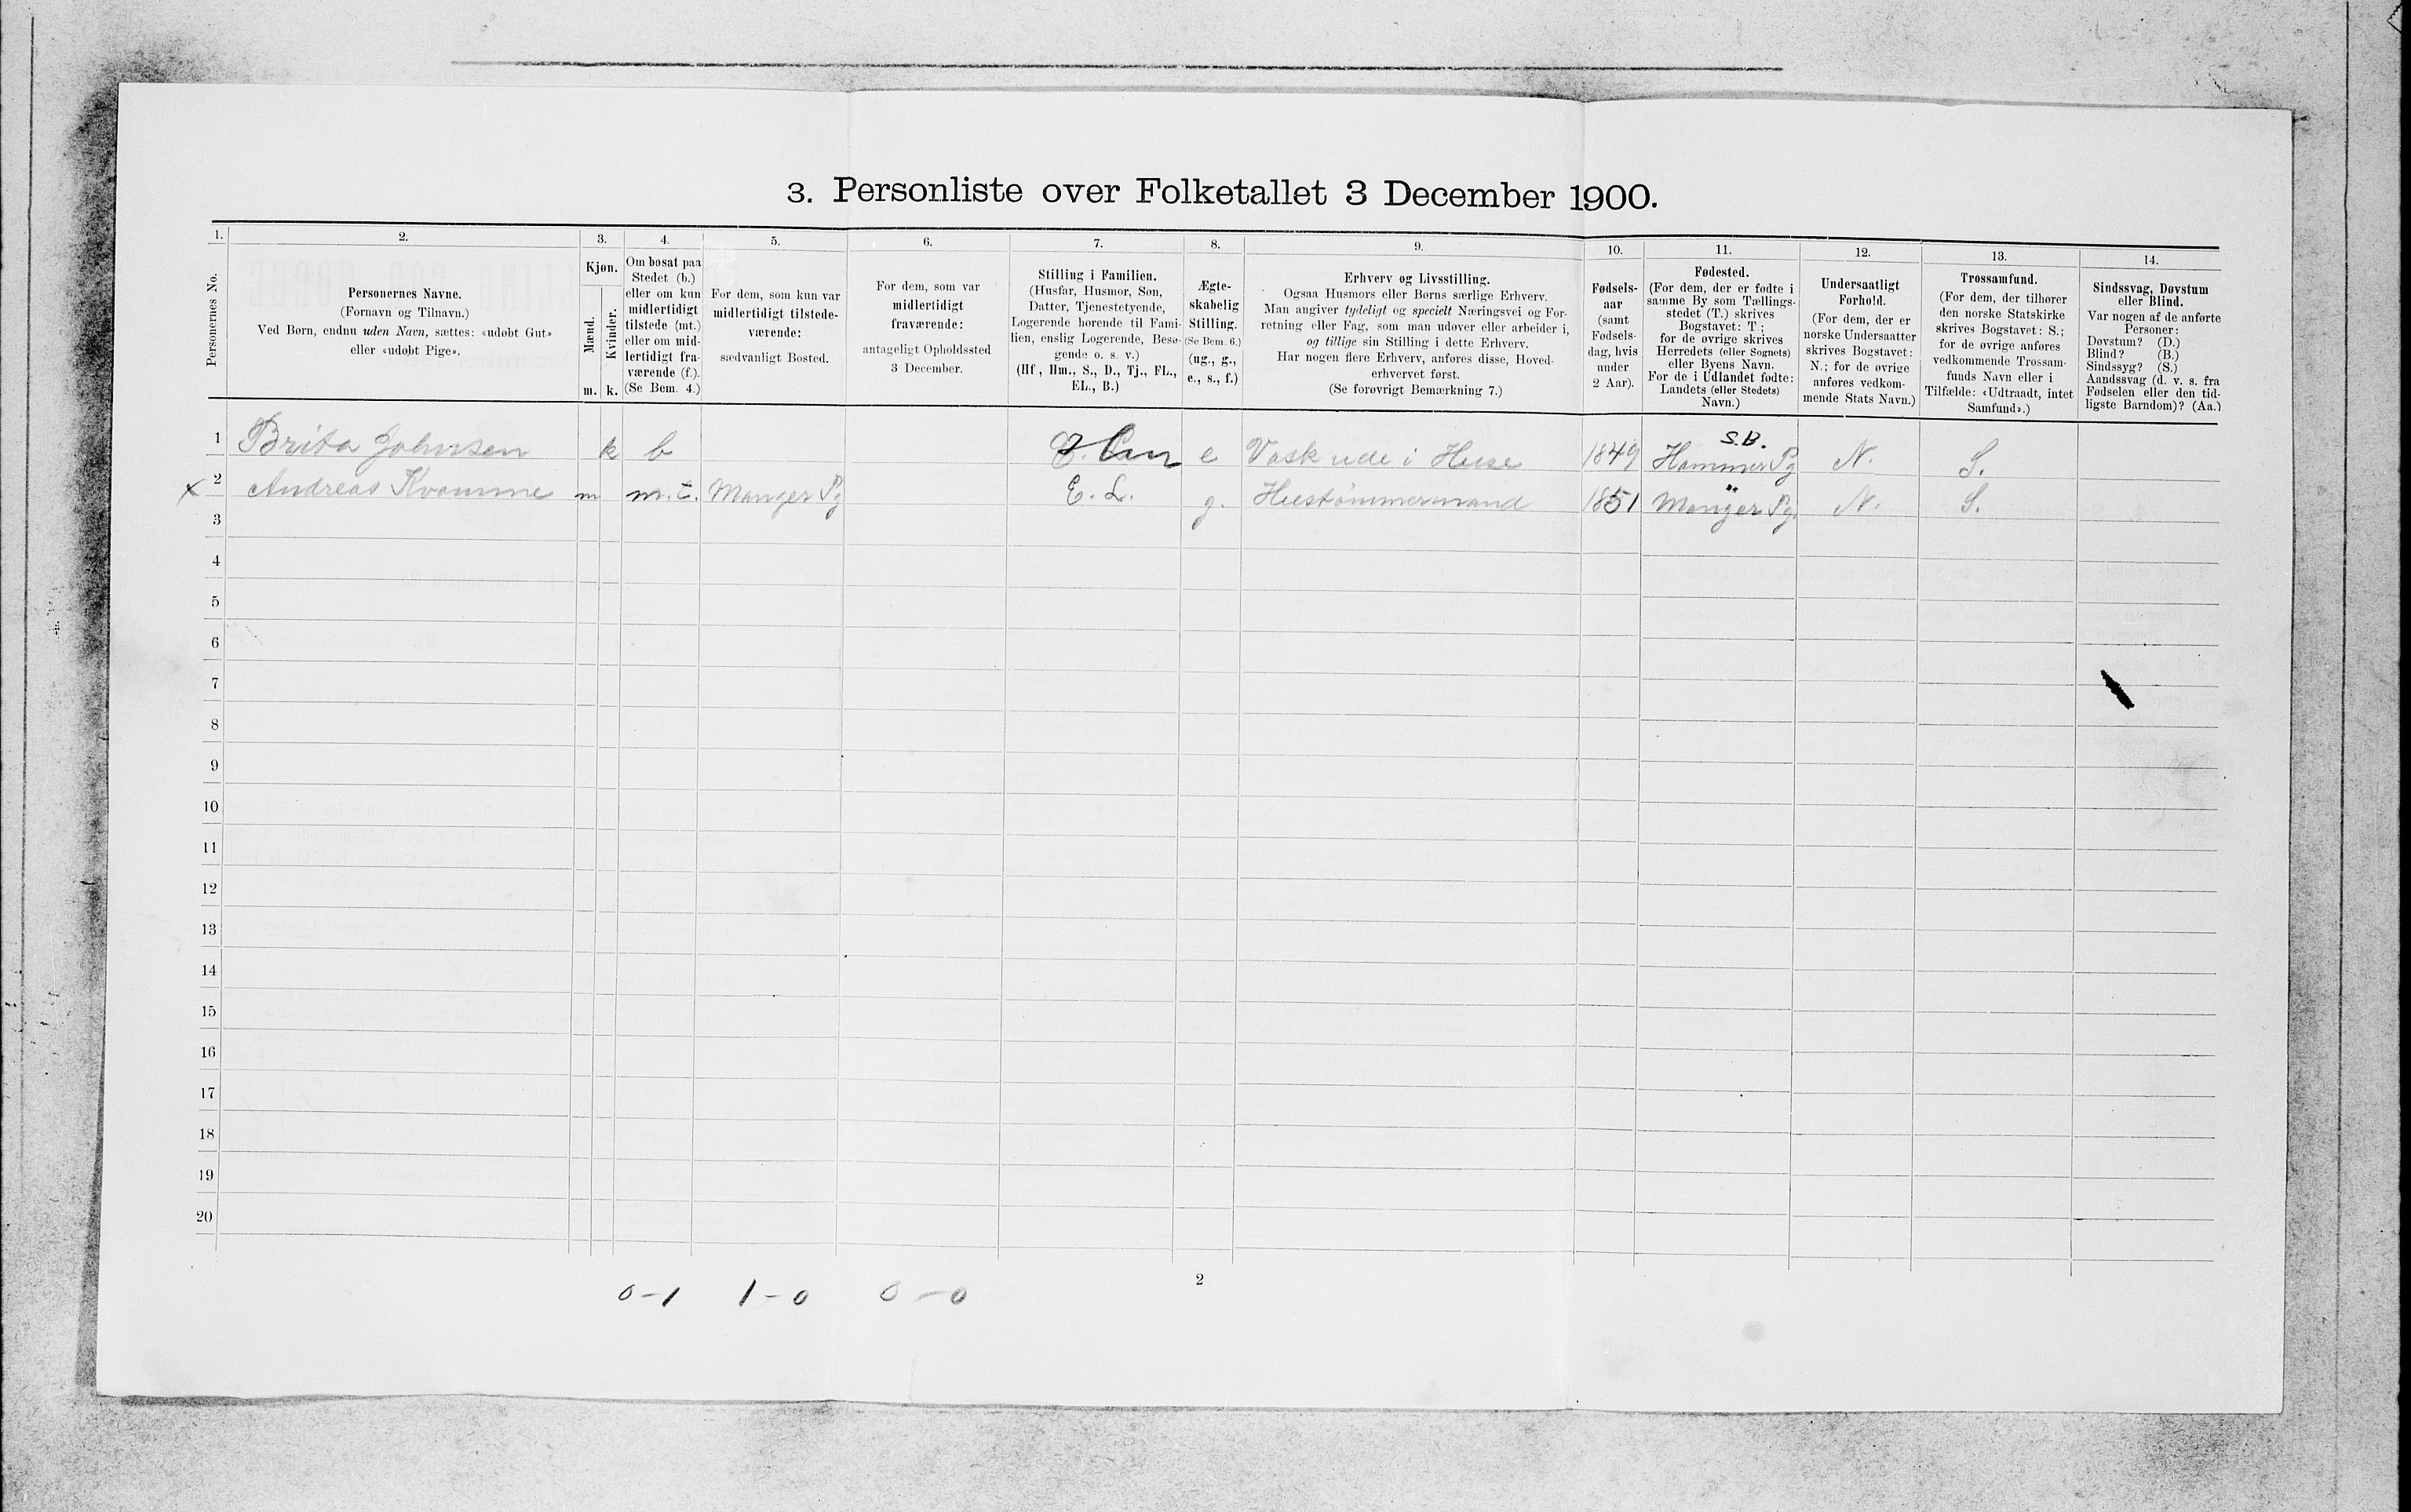 3. Personliste over Folketallet 3 December 1900.
1. 2. 3. 4. 5. 6. 7. 8. 9. 10. 11. 12. 13. 14.
Personernes No.
Personernes Navne.
(Fornavn og Tilnavn.)
Ved Børn, endnu uden Navn, sættes: «udøbt Gut»
eller «udøbt Pige».
Kjøn.
Mænd.
Kvinder.
m. k.
Om bosat paa
Stedet (b.)
eller om kun
midlertidigt
tilstede (mt.)
eller om mid-
lertidigt fra-
værende (f.).
(Se Bem. 4.)
For dem, som kun var
midlertidigt tilstede-
værende:
sædvanligt Bosted.
For dem, som var
midlertidigt
fraværende:
antageligt Opholdssted
3 December.
Stilling i Familien.
(Husfar, Husmor, Søn,
Datter, Tjenestetyende,
Logerende hørende til Fami-
lien, enslig Logerende, Besø-
gende o. s. v.)
(Hf., Hm., S., D., Tj., FL.,
EL., B.)
Ægte-
skabelig
Stilling.
(Se Bem. 6.)
(ug., g.,
e., s., f.)
Erhverv og Livsstilling.
Ogsaa Husmors eller Børns særlige Erhverv.
Man angiver tydeligt og specielt Næringsvei og For-
retning eller Fag, som man udøver eller arbeider i,
og tillige sin Stilling i dette Erhverv.
Har nogen flere Erhverv, anføres disse, Hoved-
erhvervet først.
(Se forøvrigt Bemærkning 7.)
Fødsels-
aar
(samt
Fødsels-
dag, hvis
under
2 Aar).
Fødested.
(For dem, der er fødte i
samme By som Tællings-
stedet (T.) skrives
Bogstavet: T ;
for de øvrige skrives
Herredets (eller Sognets)
eller Byens Navn.
For de i Udlandet fødte:
Landets (eller Stedets)
Navn.)
Undersaatligt
Forhold.
(For dem, der er
norske Undersaatter
skrives Bogstavet:
N.; for de øvrige
anføres vedkom-
mende Stats Navn.)
Trossamfund.
(For dem, der tilhører
den norske Statskirke
skrives Bogstavet: S.;
for de øvrige anføres
vedkommende Trossam-
funds Navn eller i
Tilfælde: «Udtraadt, intet
Samfund».)
Sindssvag, Døvstum
eller Blind.
Var nogen af de anførte
Personer:
Døvstum? (D.)
Blind? (B.)
Sindssyg? (S.)
Aandssvag (d. v. s. fra
Fødselen eller den tid-
ligste Barndom)? (Aa.)
S.B.
1 Brita Johnsen k b e Vask ude i Huse 1849 Hammer Pg N. S.
x 2 Andreas Kvamme m m.t. Manger Pg E. L. g. Hustømmermand 1851 Manger Pg. N. S.
3
4
5
6
7
8
9
10
11
12
13
14
15
16
17
18
19
20
0-1 1-0 0-0
2